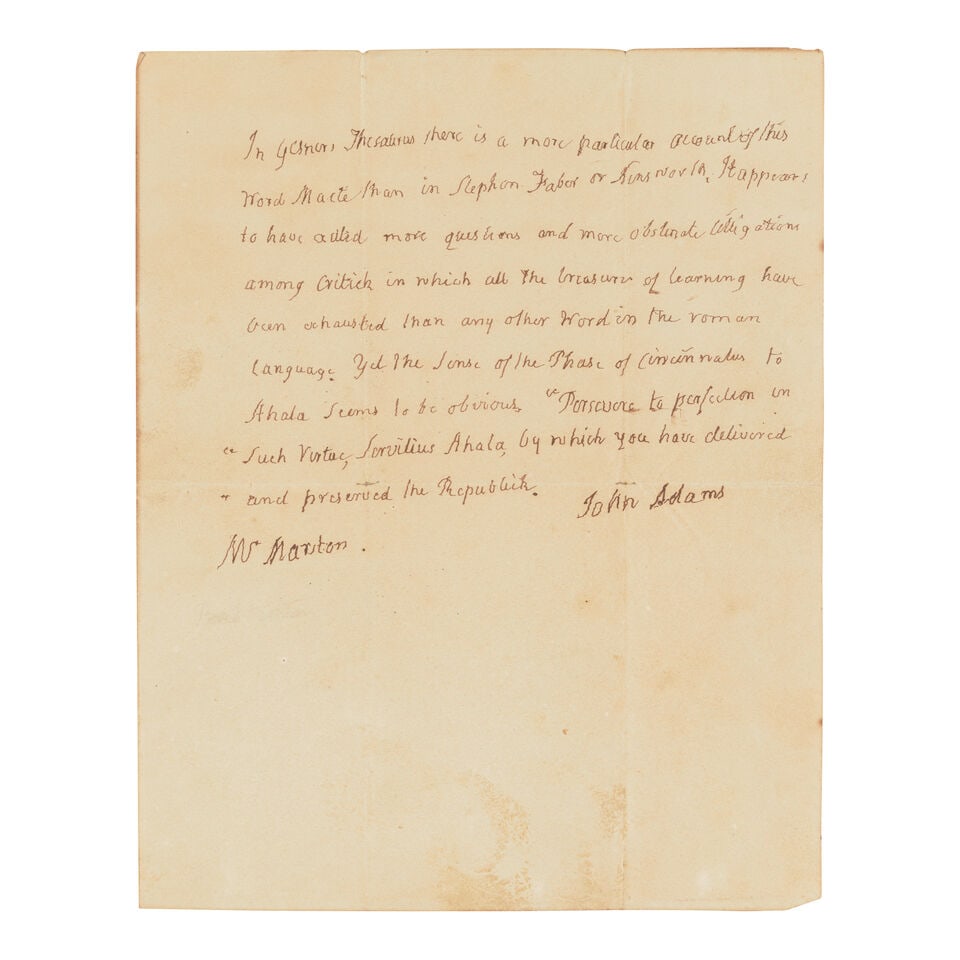 In Gesners Thesaurus there is a more particular account of this
Word Macte than in Stephen Faber or Ainsworth. It appears
to have exited more questions and more obstinate Litigations
among Critick in which all the treasure of learning have
been exhausted than any other Word in the roman
Language. Yet the Sense of the Phase of Cincinnatus to
Ahala Seems to be obvious. "Persevere to perfection in
"Such Virtue, Servilius Ahala, by which you have delivered
"and preserved the Republick.
John Adams
Mr Marston.